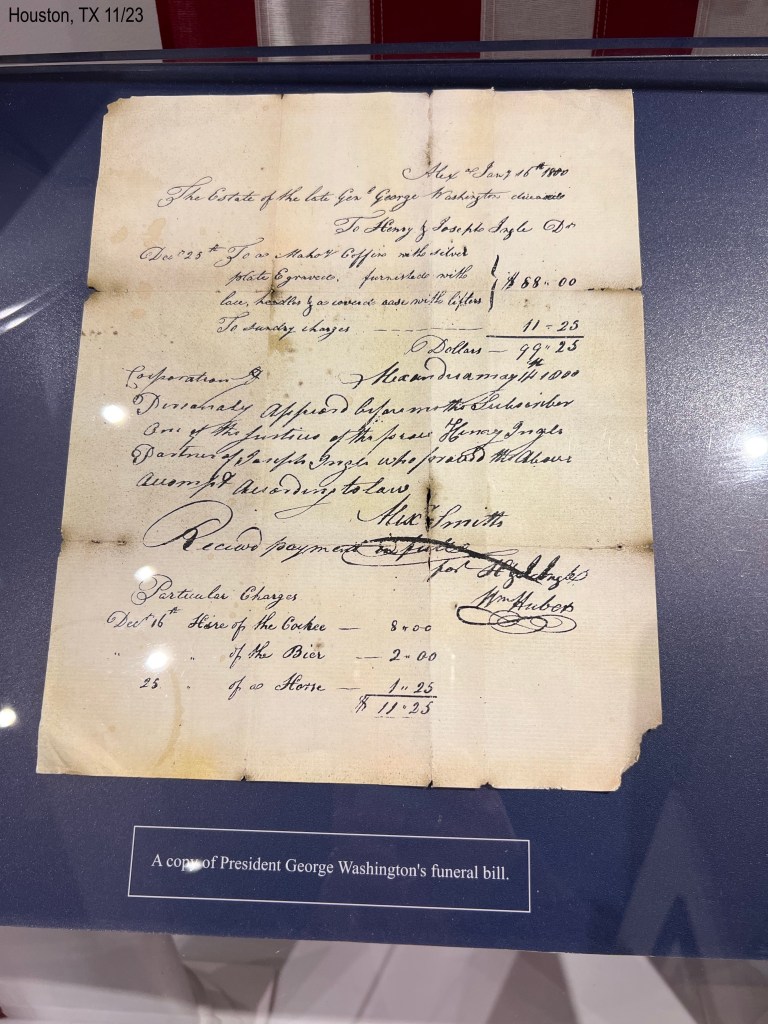 Houston, TX 11/23
Alexa Jany 16th 1800
The Estate of the late Genl George Washington deceased
To Henry & Joseph Ingle Dr
Decr 25th To a Mahoy Coffin with silver
plate Egraved, furnished with
lace, handles & a covered case with lifters } $ 88" 00
To sundry charges 11 = 25
Dollars — 99" 25
Corporation of Alexandria may 14th 1800
Personaly Appeard before me the Subscriber
One of the Justices of the peace Henry Ingle
Partner of Joseph Ingle who proved the Above
Accompt According to law
Alexr Smith
Received payment in full
for H & J Ingle
Wm Huber
Particular Charges
Decr 16th Hire of the — 8"00
" " of the Bier — 2"00
25 " of a Horse — 1" 25
$ 11" 25
A copy of President George Washington's funeral bill.